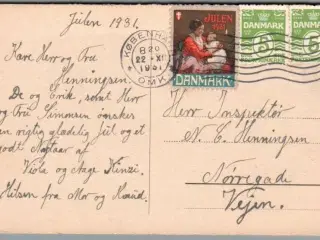 Julen 1931.
Kære Herr og Fru
Henningsen.
De og Erik, samt Herr
og Fru Simonsen ønskes
en rigtig glædelig Jul og et
godt Nytaar af
Viola og Aage
Hilsen fra Mor og
KØBENHAVN
B20
22-XII
1931
OMK
JULEN
1931
DANMARK
DANMARK
5
DANMARK
5
Herr Inspektør
N. C. Henningsen
Nørregade
Vejen.